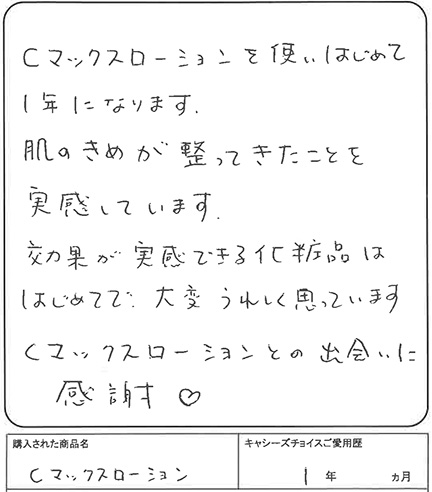 Cマックスローションを使いはじめて
1年になります.
肌のきめが整ってきたことを
実感しています.
効果が実感できる化粧品は
はじめてで. 大変うれしく思っています
Cマックスローションとの出会いに
感謝♡
購入された商品名
キャシーズチョイスご愛用歴
Cマックスローション
1年 ヵ月